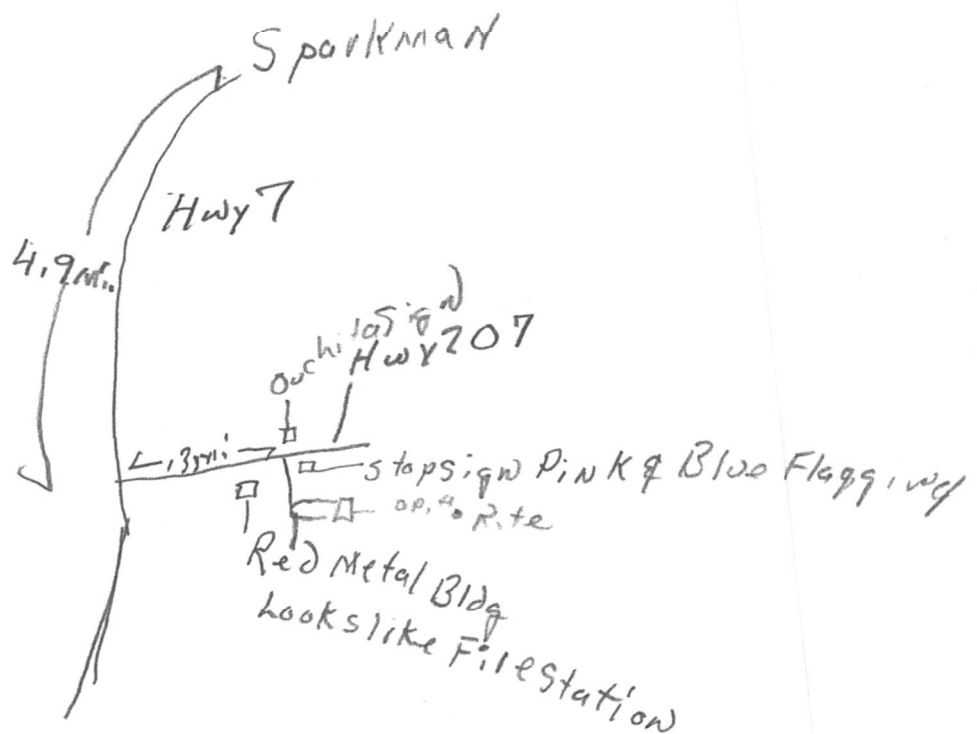 Sparkman
Hwy 7
4.9 mi.
Ouchita Sign
Hwy 207
.3 mi
Stop Sign Pink & Blue Flagging
Red Metal Bldg
Looks like Fire Station